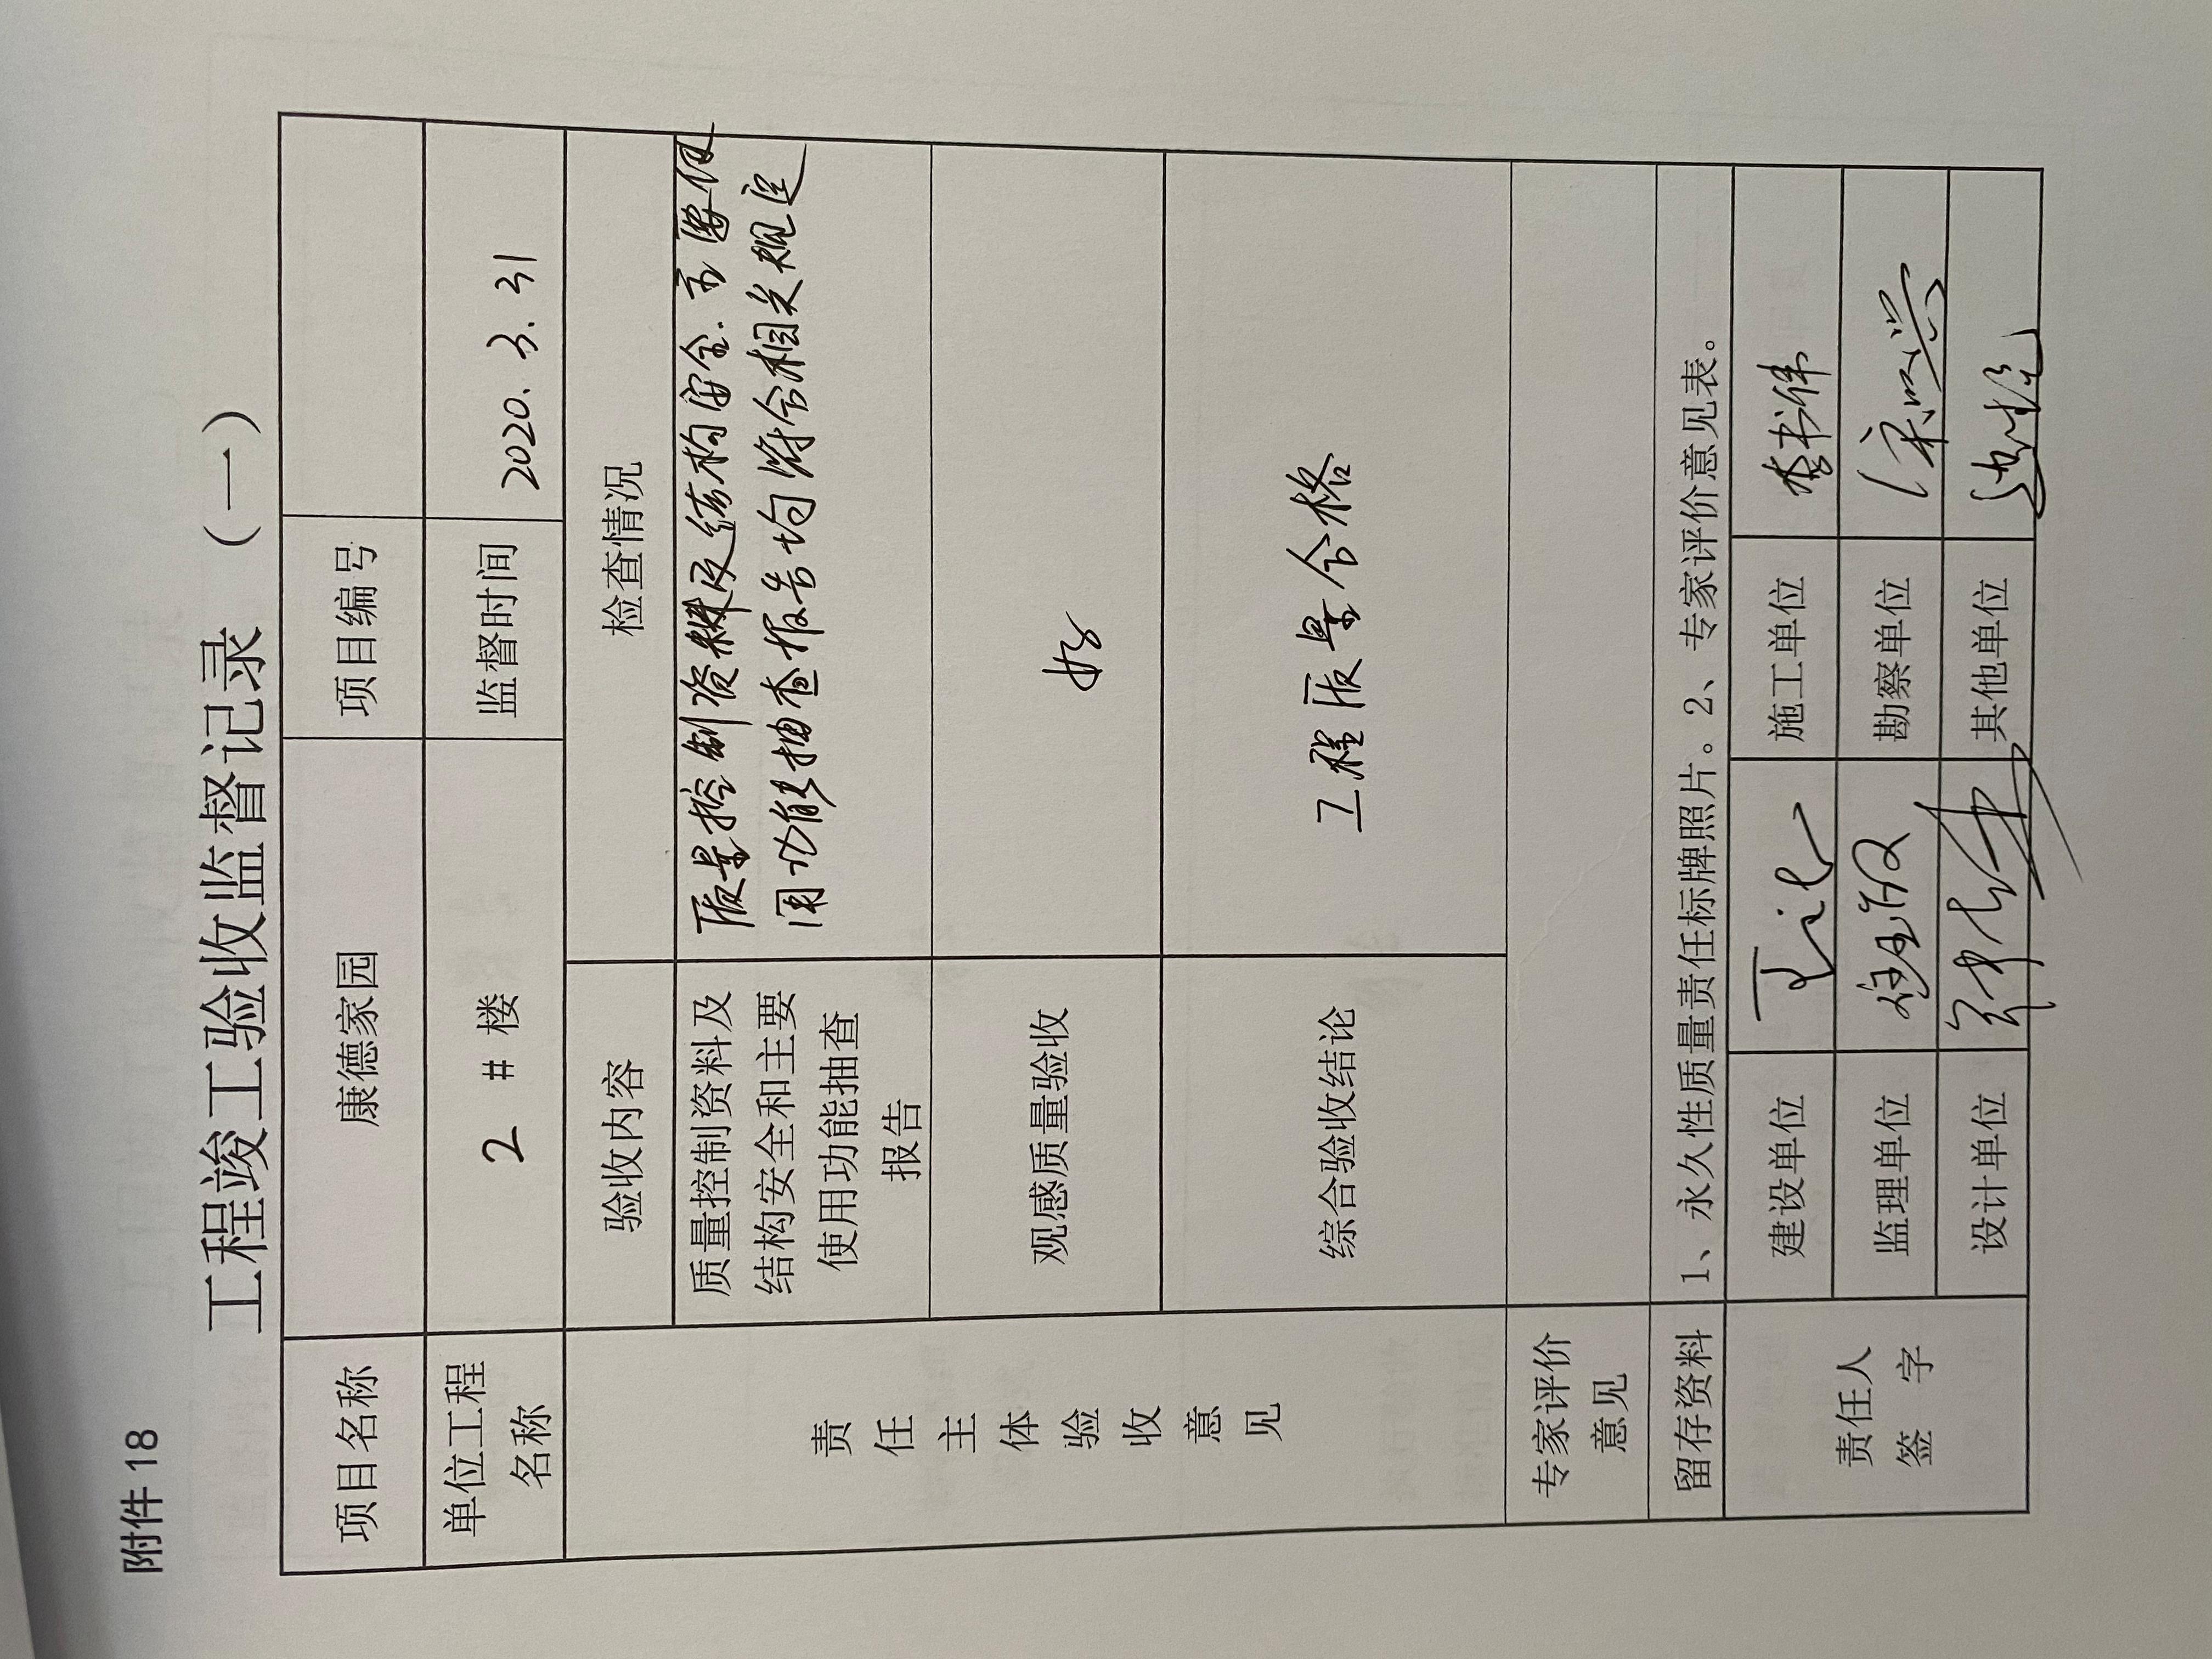 附件 18
工程竣工验收监督记录（一）
项目名称 康德家园 项目编号
单位工程名称 2 # 楼 监督时间 2020.3.31
责任主体验收意见
验收内容 检查情况
质量控制资料及
结构安全和主要
使用功能抽查
报告
质量控制资料及结构安全.主要使
用功能抽查报告均符合相关规定
观感质量验收 好
综合验收结论 工程质量合格
专家评价
意见
留存资料 1、永久性质量责任标牌照片。2、专家评价意见表。
责任人
签 字
建设单位 施工单位 李书伟
监理单位 勘察单位
设计单位 其他单位